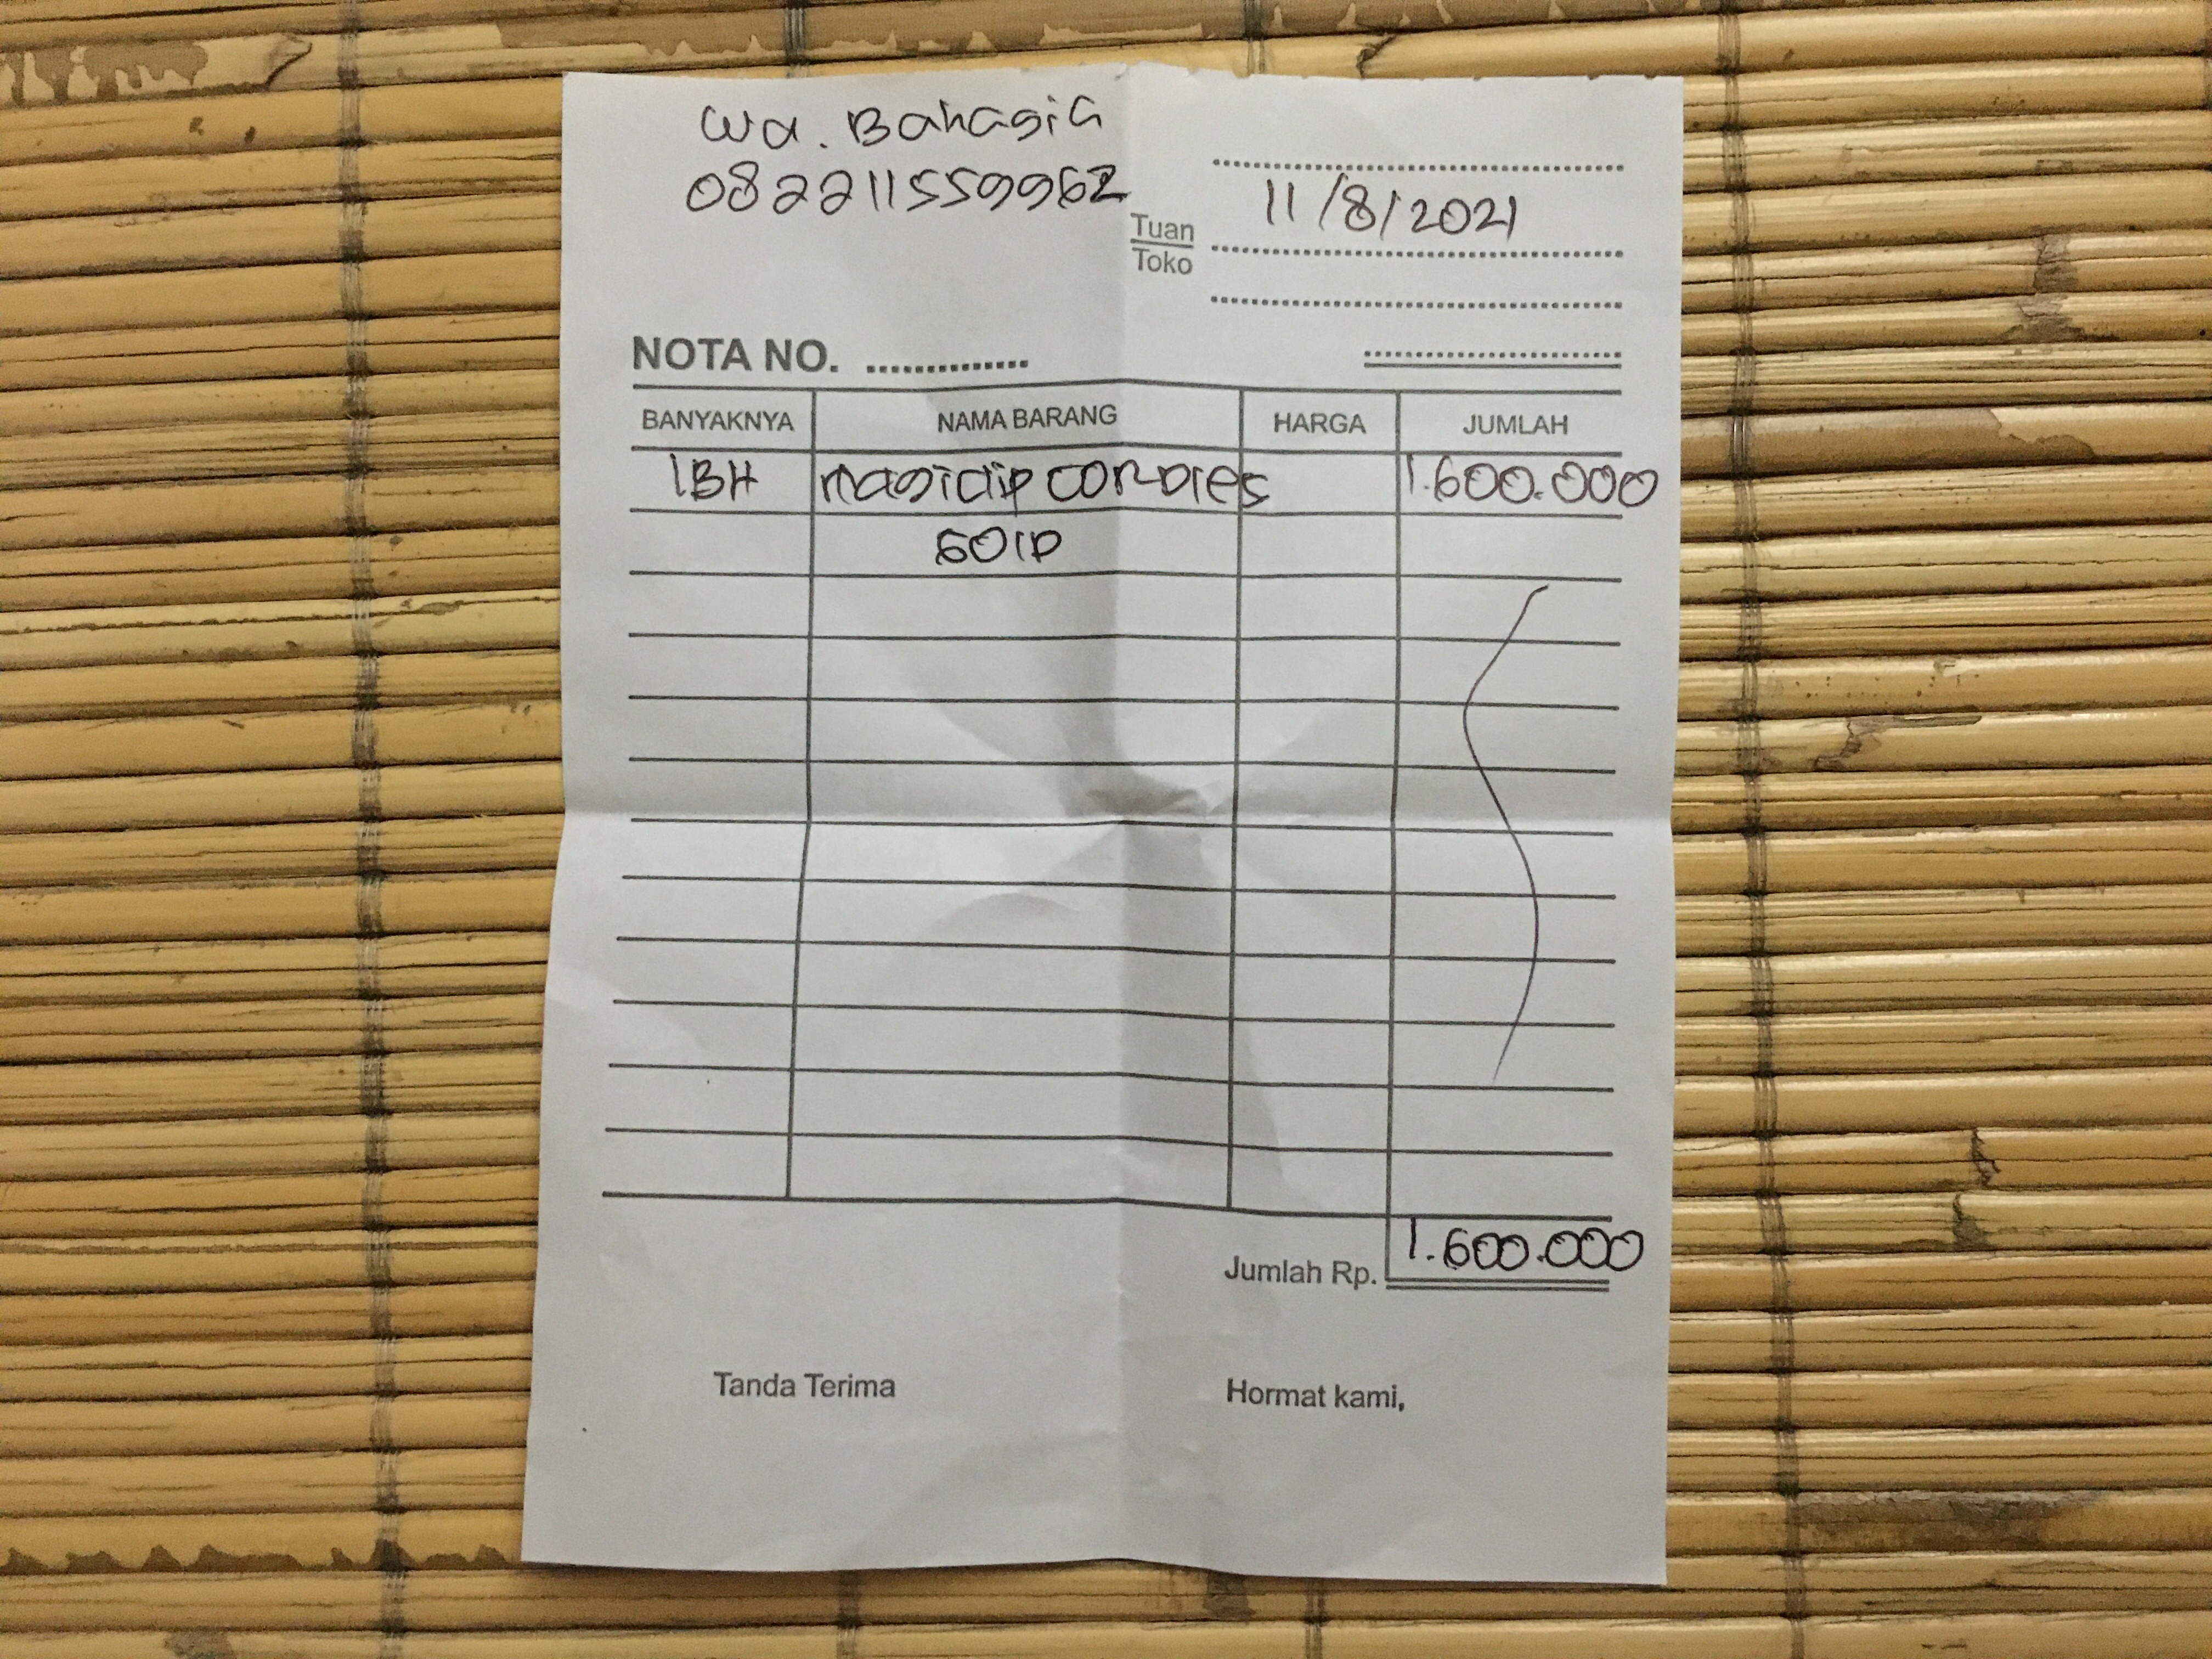 cva. Bahagia
082211559962
11/8/2021
Tuan
Toko
NOTA NO.
BANYAKNYA NAMA BARANG HARGA JUMLAH
1BH magiclip cordles 1.600.000
Gold
Jumlah Rp. 1.600.000
Tanda Terima Hormat kami,